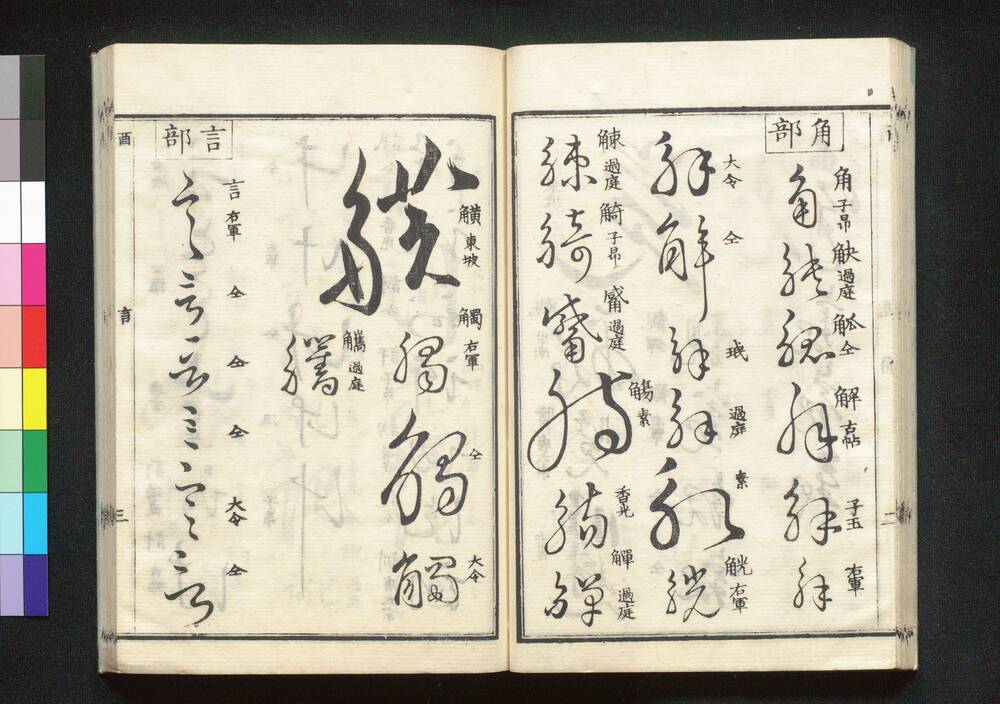 角部
角 子昂
觖 過庭
觚 仝
解 古帖
子玉
右軍
大令
仝
珉
過庭
素
觥 右軍
觫 過庭
觭 子昂
觱 過庭
觴 素
香光
觶 過庭
二
觵 東坡
觸 右軍
仝
大令
觿 過庭
言部
言 右軍
仝
仝
仝
大令
仝
酉
言
三